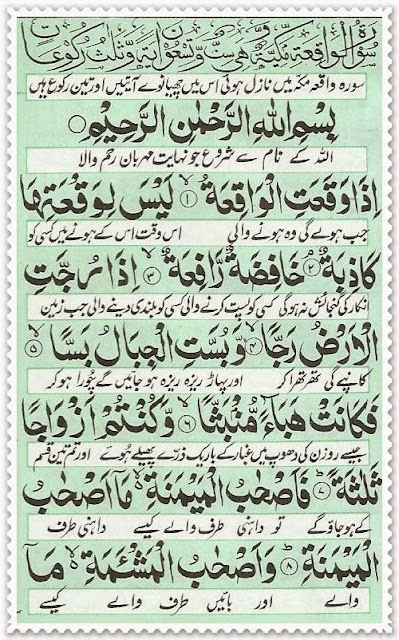 سُوْرَةُ الْوَاقِعَةِ مَكِّيَّةٌ وَّهِیَ سِتٌّ وَّتِسْعُوْنَ اٰیَةً وَّثَلٰثُ رُكُوْعَاتٍ
سورہ واقعہ مکہ میں نازل ہوئی اس میں چھیانوے آیتیں اور تین رکوع ہیں
بِسْمِ اللّٰهِ الرَّحْمٰنِ الرَّحِیْمِ
اللہ کے نام سے شروع جو نہایت مہربان رحم والا
اِذَا وَقَعَتِ الْوَاقِعَةُ ۙ۱ لَیْسَ لِوَقْعَتِهَا
جب ہولے گی وہ ہونے والی اس وقت اس کے ہونے میں کسی کو
كَاذِبَةٌ ۘ۲ خَافِضَةٌ رَّافِعَةٌ ۙ۳ اِذَا رُجَّتِ
انکار کی گنجائش نہ ہوگی کسی کو پست کرنے والی کسی کو بلندی دینے والی جب زمین
الْاَرْضُ رَجًّا ۙ۴ وَّبُسَّتِ الْجِبَالُ بَسًّا ۙ۵
کانپے گی تھرتھرا کر اور پہاڑ ریزہ ریزہ ہو جائیں گے چورا ہو کر
فَكَانَتْ هَبَآءً مُّنْۢبَثًّا ۙ۶ وَّكُنْتُمْ اَزْوَاجًا
جیسے روزن کی دھوپ میں غبار کے باریک ذرے پھیلے ہوئے اور تم تین قسم
ثَلٰثَةً ؕ۷ فَاَصْحٰبُ الْمَیْمَنَةِ ۙ مَاۤ اَصْحٰبُ
کے ہو جاؤ گے تو داہنی طرف والے کیسے داہنی طرف
الْمَیْمَنَةِ ؕ۸ وَاَصْحٰبُ الْمَشْـَٔمَةِ ۙ مَاۤ
والے اور بائیں طرف والے کیسے